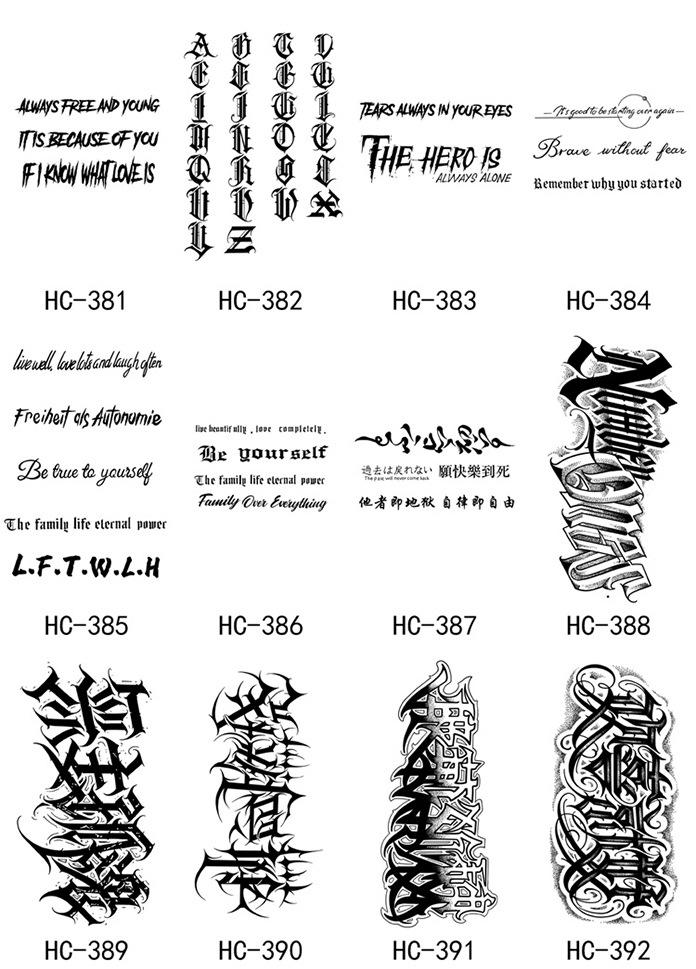 ALWAYS FREE AND YOUNG
IT IS BECAUSE OF YOU
IF I KNOW WHAT LOVE IS
HC-381
A B C D
E F G H
I J K L
M N O P
Q R S T
U V W X
Y Z
HC-382
TEARS ALWAYS IN YOUR EYES
THE HERO IS
ALWAYS ALONE
HC-383
It's good to be starting over again
Brave without fear
Remember why you started
HC-384
live well, love lots and laugh often
Freiheit als Autonomie
Be true to yourself
The family life eternal power
L.F.T.W.L.H
HC-385
live beautifully, love completely.
Be yourself
The family life eternal power
Family Over Everything
HC-386
過去は戻れない 願快樂到死
The past will never come back
他者即地狱 自律即自由
HC-387
HC-388
HC-389
HC-390
HC-391
HC-392